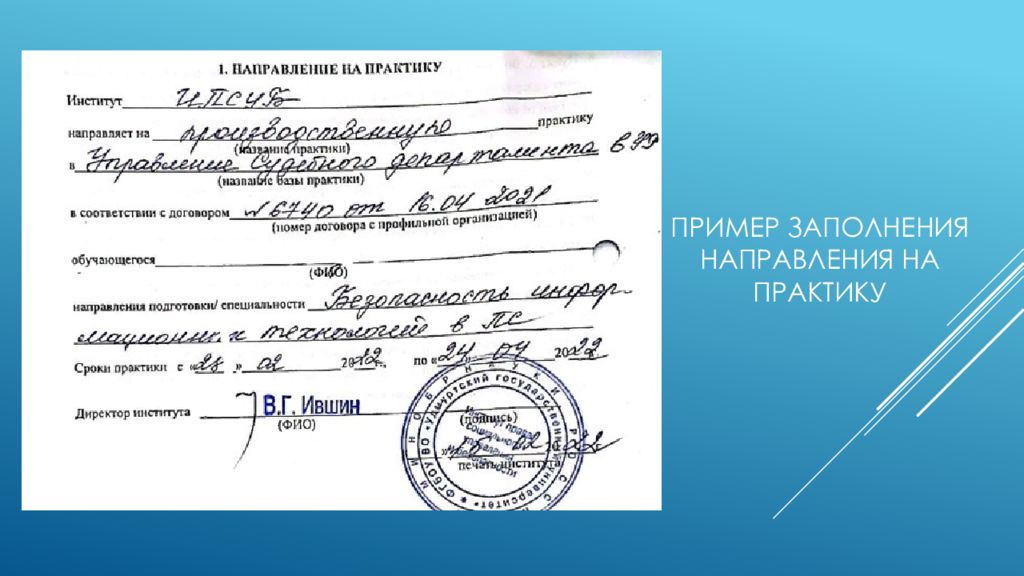 1. НАПРАВЛЕНИЕ НА ПРАКТИКУ
Институт ИПСУБ
направляет на производственную практику
(название практики)
в Управление Судебного департамента в УР
(название базы практики)
в соответствии с договором № 6740 от 16.04 2021
(номер договора с профильной организацией)
обучающегося
(ФИО)
направления подготовки/ специальности Безопасность инфор-
мационных технологий в ПС
Сроки практики с « » 02 2022 по «24» 04 2022
Директор института В.Г. Ившин
(ФИО)
(подпись)
02 2022
печать института
МИНОБРНАУКИ РОССИИ
ФГБОУ ВО «Удмуртский государственный университет»
Институт права, социального управления и безопасности
ПРИМЕР ЗАПОЛНЕНИЯ
НАПРАВЛЕНИЯ НА
ПРАКТИКУ